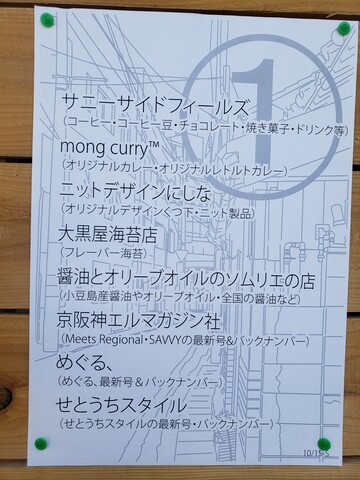 1
サニーサイドフィールズ
（コーヒー・コーヒー豆・チョコレート・焼き菓子・ドリンク等）
mong curry™
（オリジナルカレー・オリジナルレトルトカレー）
ニットデザインにしな
（オリジナルデザインくつ下・ニット製品）
大黒屋海苔店
（フレーバー海苔）
醤油とオリーブオイルのソムリエの店
（小豆島産醤油やオリーブオイル・全国の醤油など）
京阪神エルマガジン社
（Meets Regional・SAVVYの最新号&バックナンバー）
めぐる、
（めぐる、最新号＆バックナンバー）
せとうちスタイル
（せとうちスタイルの最新号・バックナンバー）